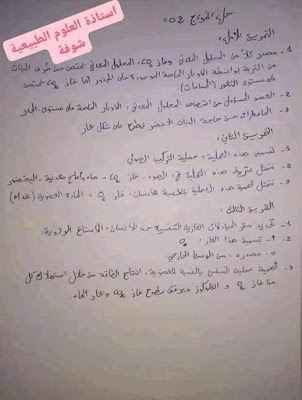 استاذة العلوم الطبيعية
شوفة
حل النموذج 02
التمرين الأول:
1- مصدر كلا من المحلول المعدني وغاز CO2، المحلول المعدني يمتص من طرف النبات
من التربة بواسطة الأوبار الماصة الموجودة على الجذور أما غاز CO2 يمتص
على مستوى الثغور (المسامات).
2- العضو المسؤول عن امتصاص المحلول المعدني: الأوبار الماصة على مستوى الجذر
3- الماء الزائد عن حاجة النبات الأخضر يطرح على شكل بخار
التمرين الثاني:
1- تسمى هذه العملية: عملية التركيب الضوئي
2- تتمثل شروط هذه العملية في: الضوء - غاز CO2 - ماء وأملاح معدنية - اليخضور
3- تتمثل أهمية هذه العملية بالنسبة للإنسان: غاز O2 - المادة العضوية (غذاء)
التمرين الثالث:
1- تحديد مقر المبادلات الغازية التنفسية عند الإنسان: الأسناخ الرئوية.
2- تسمية هذا الغاز: O2
- مصدره: من الوسط الخارجي
3- أهمية عملية التنفس بالنسبة للعضوية: انتاج الطاقة من خلال استهلاك كل
من غاز O2 و الغلوكوز ويرفق بطرح غاز CO2 وبخار الماء.